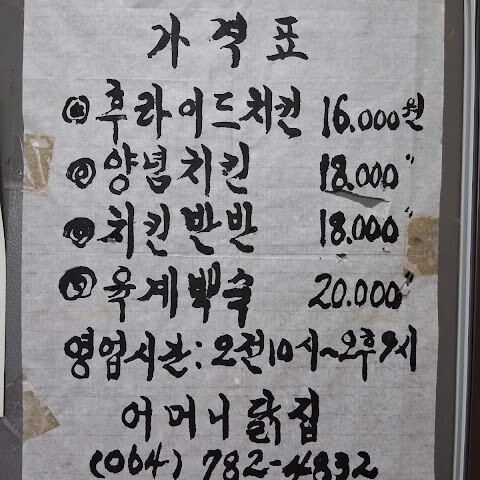 가격표
◎ 후라이드치킨 16.000원
◎ 양념치킨 18.000〃
◎ 치킨반반 18.000〃
◎ 육계백숙 20.000〃
영업시간: 오전10시~오후9시
어머니닭집
(064) 782-4832